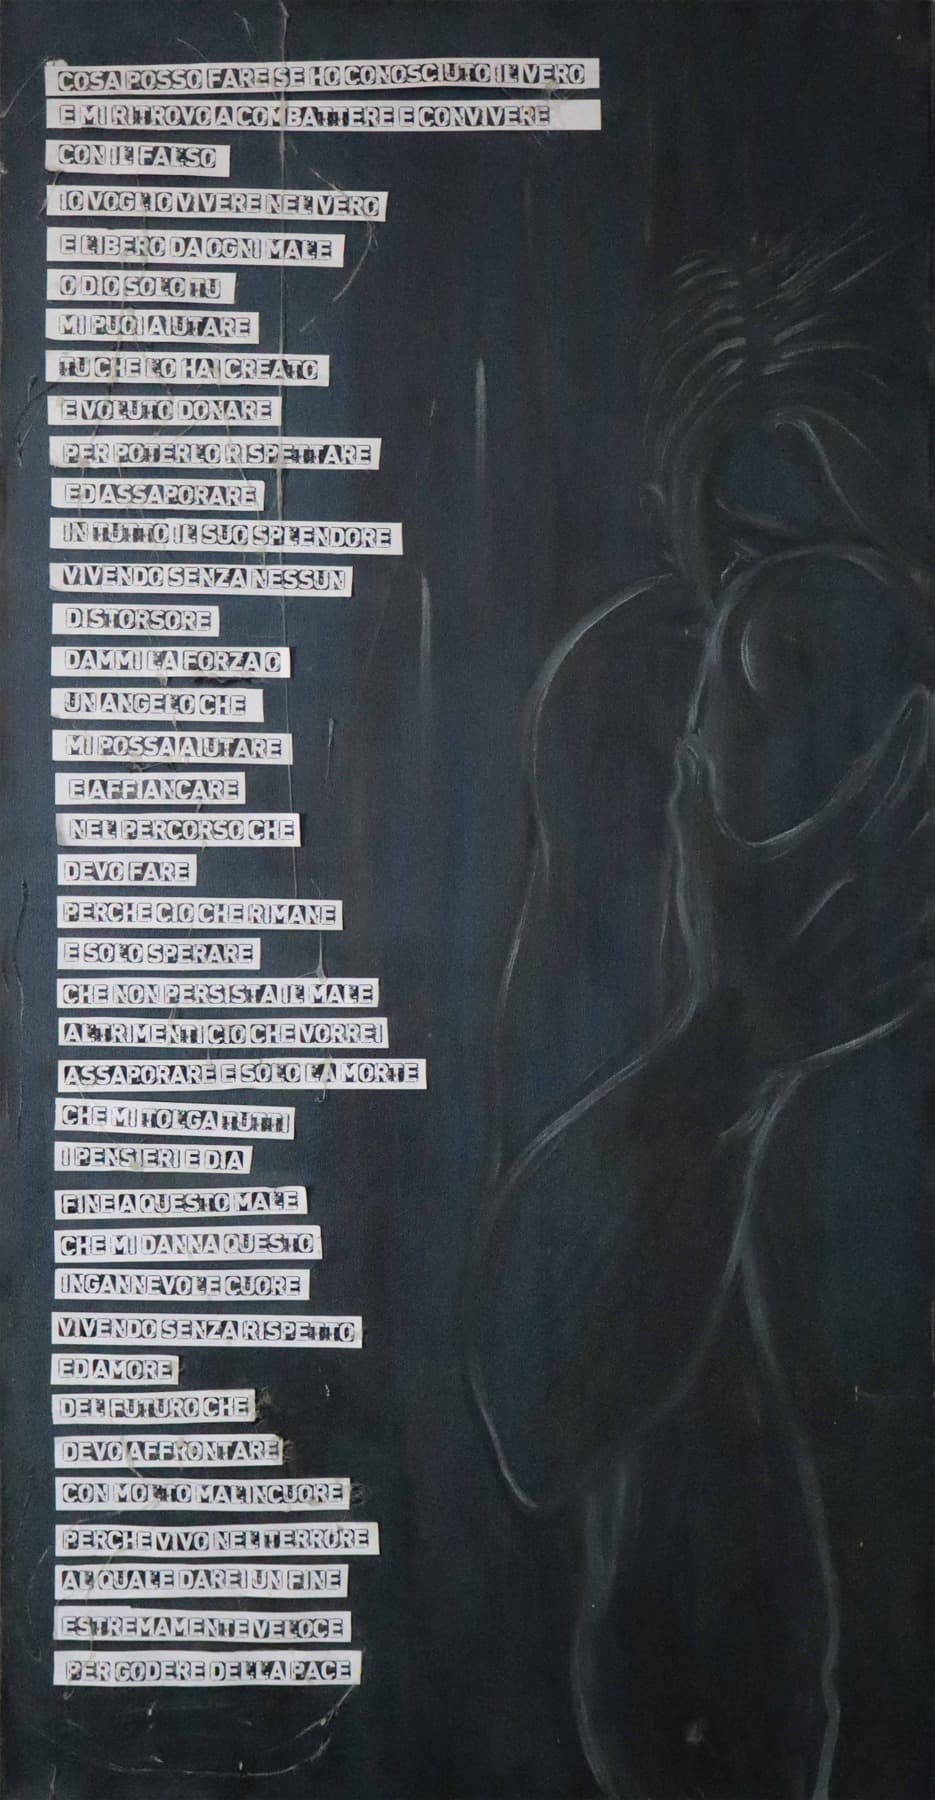 COSA POSSO FARE SE HO CONOSCIUTO IL VERO
E MI RITROVO A COMBATTERE E CONVIVERE
CON IL FALSO
IO VOGLIO VIVERE NEL VERO
E LIBERO DA OGNI MALE
O DIO SOLO TU
MI PUOI AIUTARE
TU CHE LO HAI CREATO
E VOLUTO DONARE
PER POTERLO RISPETTARE
ED ASSAPORARE
IN TUTTO IL SUO SPLENDORE
VIVENDO SENZA NESSUN
DISTORSORE
DAMMI LA FORZA O
UN ANGELO CHE
MI POSSA AIUTARE
E AFFIANCARE
NEL PERCORSO CHE
DEVO FARE
PERCHE CIO CHE RIMANE
E SOLO SPERARE
CHE NON PERSISTA IL MALE
ALTRIMENTI CIO CHE VORREI
ASSAPORARE E SOLO LA MORTE
CHE MI TOLGA TUTTI
I PENSIERI E DIA
FINE A QUESTO MALE
CHE MI DANNA QUESTO
INGANNEVOLE CUORE
VIVENDO SENZA RISPETTO
ED AMORE
DEL FUTURO CHE
DEVO AFFRONTARE
CON MOLTO MALINCUORE
PERCHE VIVO NEL TERRORE
AL QUALE DAREI UN FINE
ESTREMAMENTE VELOCE
PER GODERE DELLA PACE